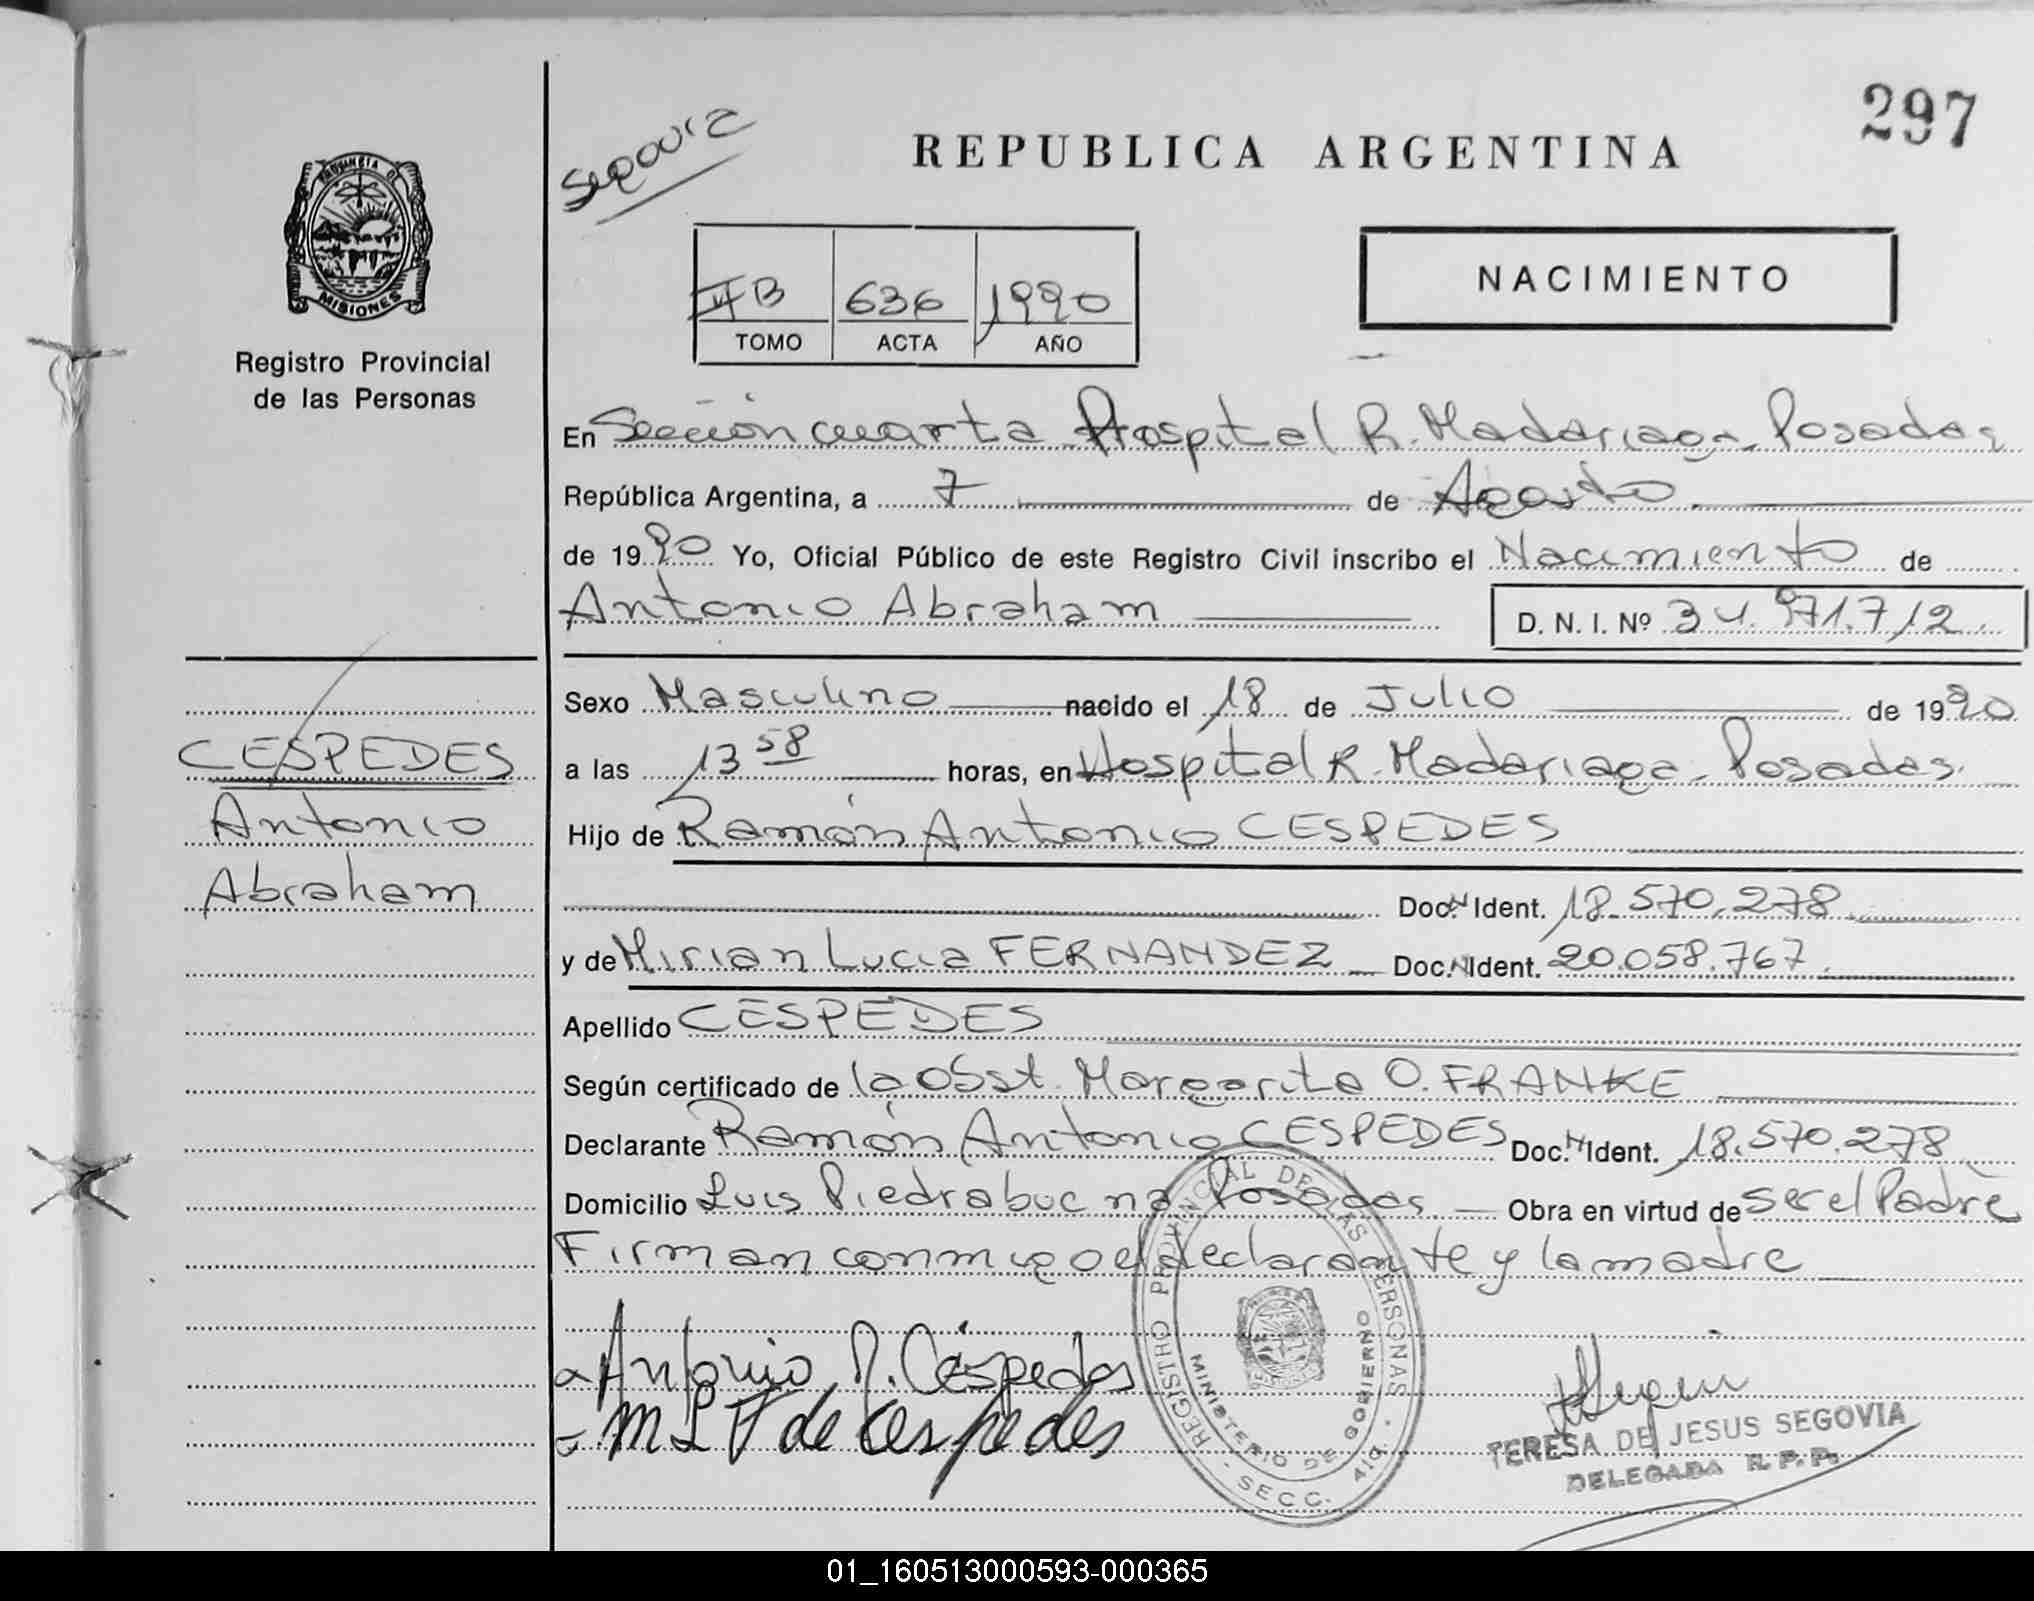 297
Segovia
REPUBLICA ARGENTINA
PROVINCIA DE
MISIONES
Registro Provincial
de las Personas
II B 636 1990
TOMO ACTA AÑO
NACIMIENTO
En Sección cuarta Hospital R. Madariaga - Posadas
República Argentina, a 7 de Agosto
de 1990 Yo, Oficial Público de este Registro Civil inscribo el Nacimiento de
Antonio Abraham D. N. I. Nº 34.971.712
Sexo Masculino nacido el 18 de Julio de 1990
a las 13 58 horas, en Hospital R. Madariaga - Posadas
Hijo de Ramón Antonio CESPEDES
Doc. N Ident. 18.570.278
y de Mirian Lucia FERNANDEZ Doc. N Ident. 20.058.767
Apellido CESPEDES
Según certificado de la Obst. Margarita O. FRANKE
Declarante Ramón Antonio CESPEDES Doc. N Ident. 18.570.278
Domicilio Luis Piedrabuena Posadas Obra en virtud de ser el Padre
Firman conmigo el declarante y la madre
CESPEDES
Antonio
Abraham
Antonio R. Céspedes
M L F de Cespedes
REGISTRO PROVINCIAL DE LAS PERSONAS
MINISTERIO DE GOBIERNO
SECC. 4ta.
TERESA DE JESUS SEGOVIA
DELEGADA R. P. P.
01_160513000593-000365